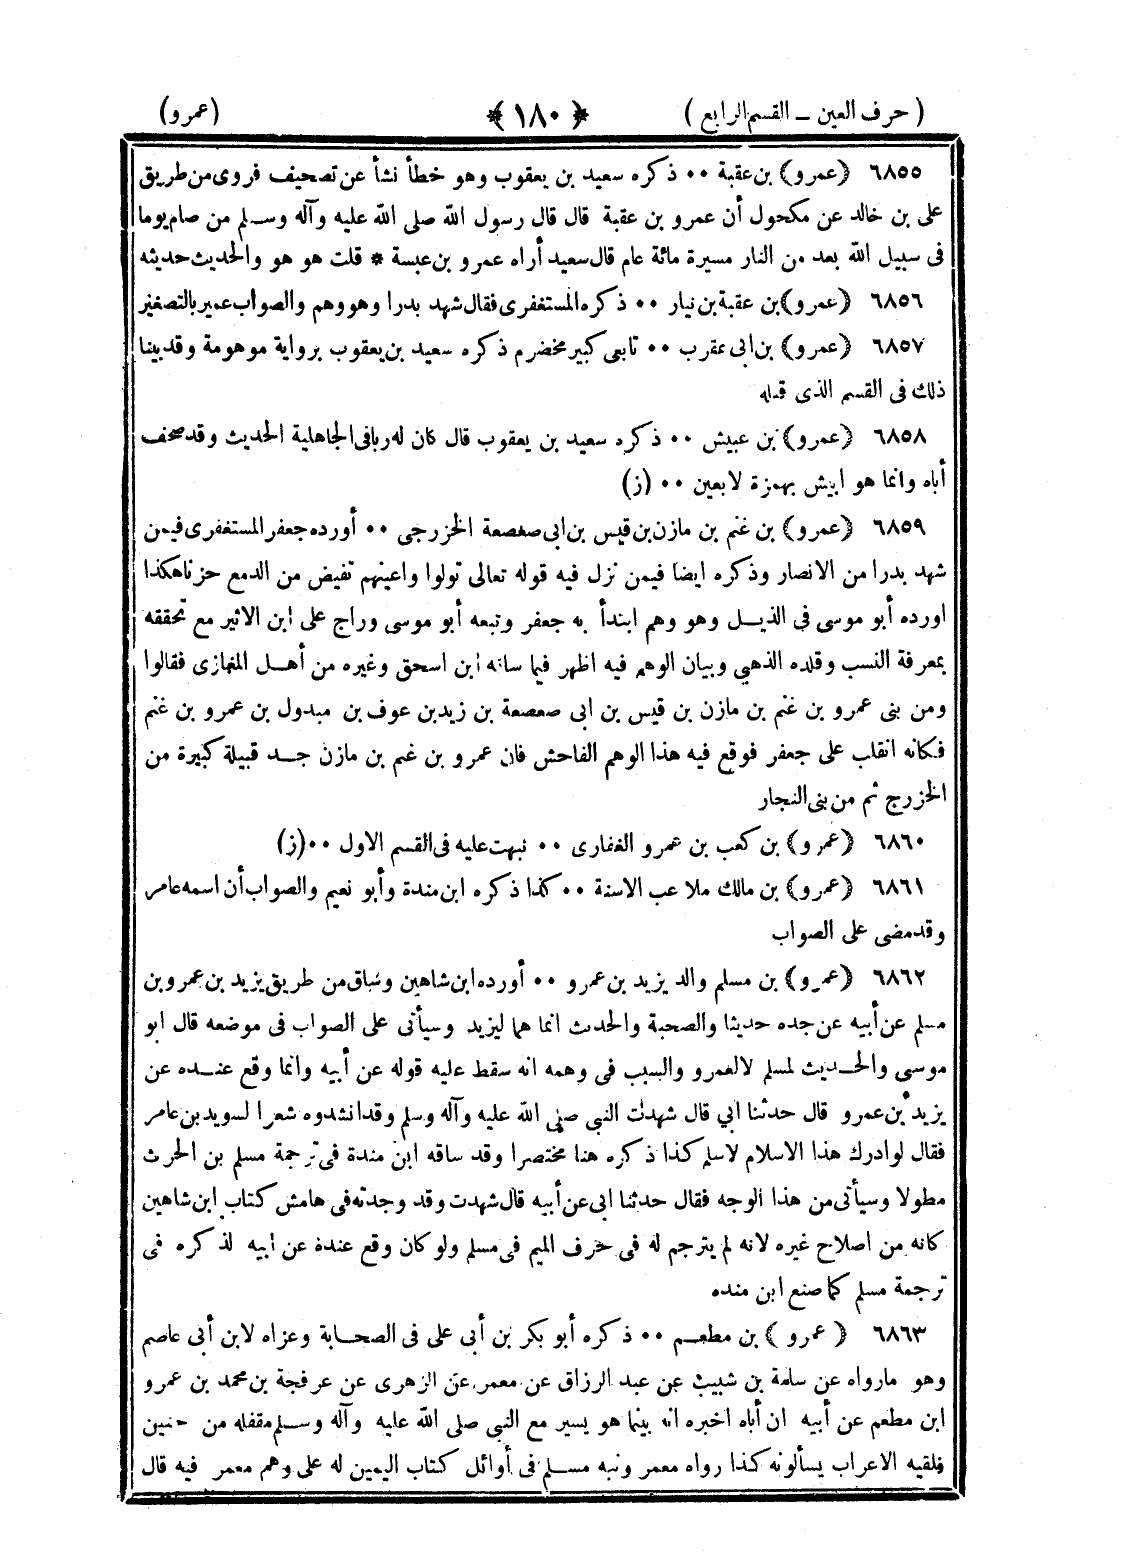 ( حرف العين ــ القسم الرابع ) ﴿ * ١٨٠ * ﴾ (عمرو)
٦٨٥٥ ﴿عمرو﴾ بن عقبة ٠٠ ذكره سعيد بن يعقوب وهو خطأ نشأ عن تصحيف فروى من طريق
على بن خالد عن مكحول أن عمرو بن عقبة قال قال رسول الله صلى الله عليه وآله وسلم من صام يوما
فى سبيل الله بعد من النار مسيرة مائة عام قال سعيد أراه عمرو بن عبسة * قلت هو هو والحديث حديثه
٦٨٥٦ ﴿عمرو﴾ بن عقبة بن نيار ٠٠ ذكره المستغفرى فقال شهد بدرا وهو وهم والصواب عمير بالتصغير
٦٨٥٧ ﴿عمرو﴾ بن ابى عقرب ٠٠ تابعى كبير مخضرم ذكره سعيد بن يعقوب برواية موهومة وقد بينا
ذلك فى القسم الذى قبله
٦٨٥٨ ﴿عمرو﴾ بن عبيش ٠٠ ذكره سعيد بن يعقوب قال كان له ربا فى الجاهلية الحديث وقد صحف
أباه وانما هو ابيش بهمزة لا بعين ٠٠ (ز)
٦٨٥٩ ﴿عمرو﴾ بن غنم بن مازن بن قيس بن ابى صعصعة الخزرجى ٠٠ أورده جعفر المستغفرى فيمن
شهد بدرا من الانصار وذكره ايضا فيمن نزل فيه قوله تعالى تولوا واعينهم تفيض من الدمع حزنا هكذا
اورده أبو موسى فى الذيل وهو وهم ابتدأ به جعفر وتبعه أبو موسى وراج على ابن الاثير مع تحققه
بمعرفة النسب وقلده الذهبي وبيان الوهم فيه اظهر فيما ساقه ابن اسحق وغيره من أهل المغازى فقالوا
ومن بنى عمرو بن غنم بن مازن بن قيس بن ابى صعصعة بن زيد بن عوف بن مبدول بن عمرو بن غنم
فكانه انقلب على جعفر فوقع فيه هذا الوهم الفاحش فان عمرو بن غنم بن مازن جد قبيلة كبيرة من
الخزرج ثم من بنى النجار
٦٨٦٠ ﴿عمرو﴾ بن كعب بن عمرو الغفارى ٠٠ نبهت عليه فى القسم الاول ٠٠(ز)
٦٨٦١ ﴿عمرو﴾ بن مالك ملاعب الاسنة ٠٠ كذا ذكره ابن مندة وأبو نعيم والصواب أن اسمه عامر
وقد مضى على الصواب
٦٨٦٢ ﴿عمرو﴾ بن مسلم والد يزيد بن عمرو ٠٠ أورده ابن شاهين وساق من طريق يزيد بن عمرو بن
مسلم عن أبيه عن جده حديثا والصحبة والحدث انما هما ليزيد وسيأتى على الصواب فى موضعه قال ابو
موسى والحديث لمسلم لا لعمرو والسبب فى وهمه انه سقط عليه قوله عن أبيه وانما وقع عنده عن
يزيد بن عمرو قال حدثنا ابي قال شهدت النبي صلى الله عليه وآله وسلم وقد انشدوه شعرا لسويد بن عامر
فقال لو ادرك هذا الاسلام لاسلم كذا ذكره هنا مختصرا وقد ساقه ابن مندة فى ترجمة مسلم بن الحرث
مطولا وسيأتى من هذا الوجه فقال حدثنا ابى عن أبيه قال شهدت وقد وجدته فى هامش كتاب ابن شاهين
كانه من اصلاح غيره لانه لم يترجم له فى حرف الميم فى مسلم ولو كان وقع عنده عن ابيه لذكره فى
ترجمة مسلم كما صنع ابن منده
٦٨٦٣ ﴿ عمرو ﴾ بن مطعم ٠٠ ذكره أبو بكر بن أبى على فى الصحابة وعزاه لابن أبى عاصم
وهو مارواه عن سلمة بن شبيب عن عبد الرزاق عن معمر عن الزهرى عن عرفجة بن محمد بن عمرو
ابن مطعم عن أبيه ان أباه اخبره انه بينما هو يسير مع النبي صلى الله عليه وآله وسلم مقفله من حنين
فلقيه الاعراب يسألونه كذا رواه معمر ونبه مسلم فى أوائل كتاب اليمين له على وهم معمر فيه قال